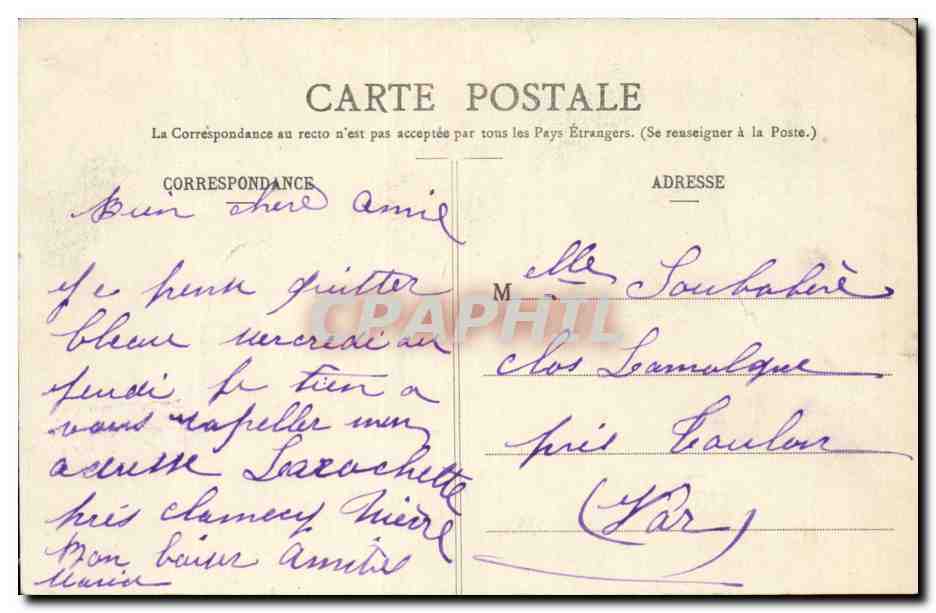 CARTE POSTALE
La Correspondance au recto n'est pas acceptée par tous les Pays Étrangers. (Se renseigner à la Poste.)
CORRESPONDANCE
Bien chere Amie
Je pense quitter
bleau mercredi au
jeudi je tien a
vous rapeller mon
adresse Larochette
près clamecy Nièvre
Bon baiser Amitiés
Maria
ADRESSE
M Mlle Soubabère
clos Lamalgue
près Toulon
(Var)
CPAPHIL